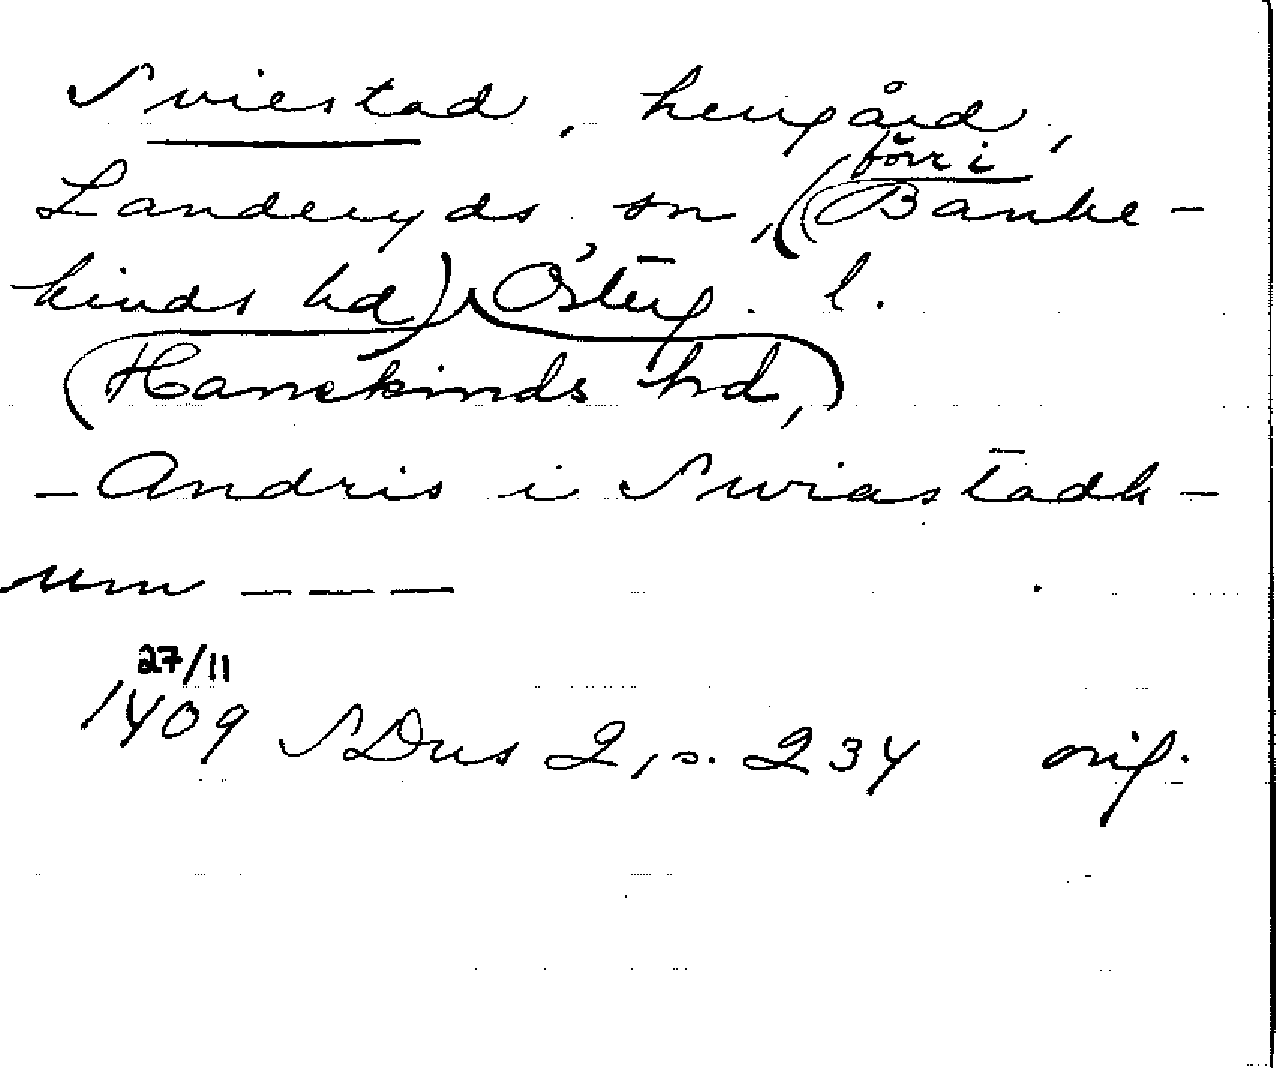 Sviestad, herrgård,
förr i
Landeryds sn, (Banke-
kinds hd) Österg. l.
(Hanekinds hd,)
- Andris i Swiastadh-
um ---
27/11
1409 SDns 2, s. 234 orig.